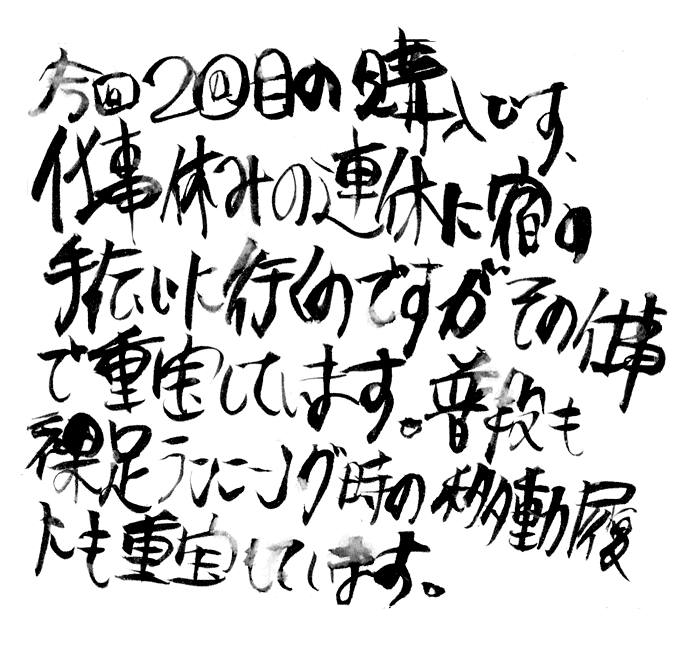 今回2回目の購入です、
仕事休みの連休に宿の
手伝いに行くのですがその仕事
で重宝しています。普段も
裸足ランニング時の移動履
にも重宝しています。